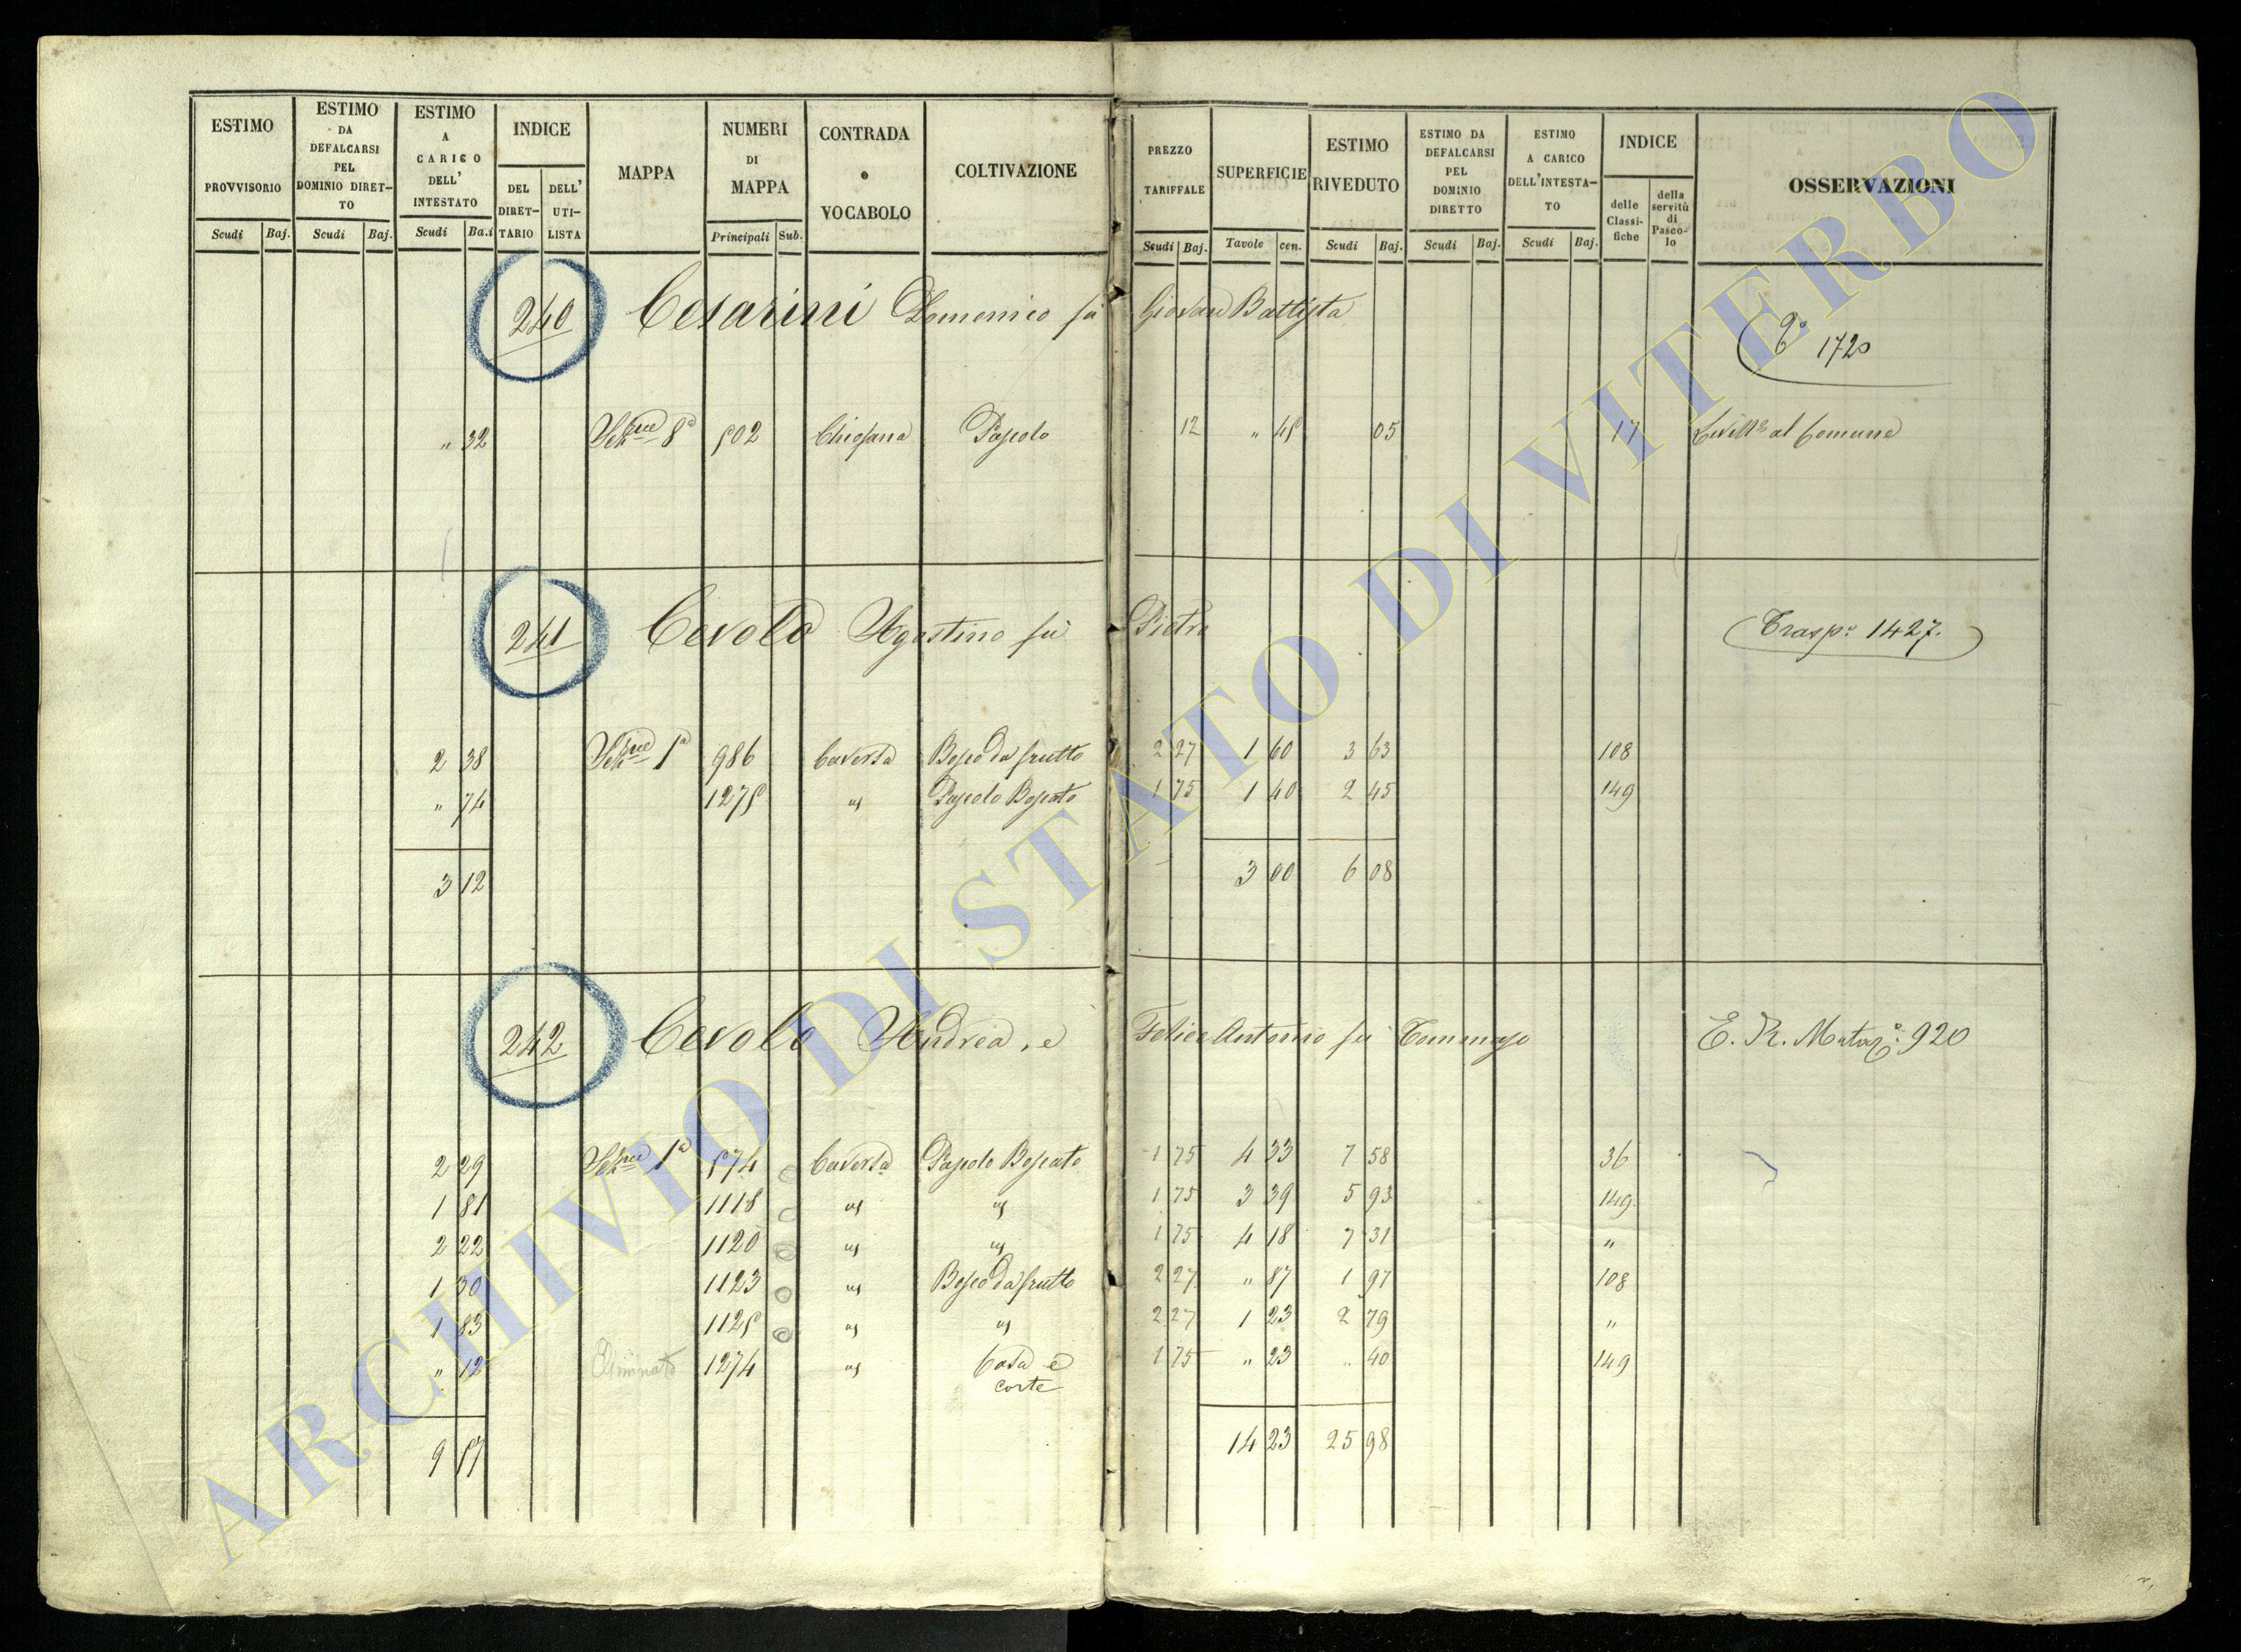 ESTIMO PROVVISORIO
Scudi Baj.
ESTIMO DA DEFALCARSI PEL DOMINIO DIRET-TO
Scudi Baj.
ESTIMO A CARICO DELL' INTESTATO
Scudi Ba.i
INDICE
DEL DIRET-TARIO
DELL' UTI-LISTA
MAPPA
NUMERI DI MAPPA
Principali Sub.
CONTRADA o VOCABOLO
COLTIVAZIONE
PREZZO TARIFFALE
Scudi Baj.
SUPERFICIE
Tavole cen.
ESTIMO RIVEDUTO
Scudi Baj.
ESTIMO DA DEFALCARSI PEL DOMINIO DIRETTO
Scudi Baj.
ESTIMO A CARICO DELL'INTESTA-TO
Scudi Baj.
INDICE
delle Classi-fiche
della servitù di Pasco-lo
OSSERVAZIONI
240 Cesarini Domenico fu Giovan Battista
1720
" 32 Sezne 8a 502 Pascolo 12 " 45 05 17 al Comune
241 Cevolo Agostino fu Pietro Traspo 1427.
2 38 Sezne 1a 986 Caversa Bosco da frutto 2 27 1 60 3 63 108
" 74 1275 " Pascolo Boscato 1 75 1 40 2 45 149
3 12 3 00 6 08
242 Cevolo Andrea, e Felice Antonio fu Tommaso E. R. 920
2 29 Sezne 1a 574 Caversa Pascolo Boscato 1 75 4 33 7 58 36
1 81 1118 " " 1 75 3 39 5 93 149.
2 22 1120 " " 1 75 4 18 7 31 "
1 30 1123 " Bosco da frutto 2 27 " 87 1 97 108
1 83 1125 " " 2 27 1 23 2 79 "
" 12 Eliminato 1274 " Casa e corte 1 75 " 23 " 40 149
9 57 14 23 25 98
ARCHIVIO DI STATO DI VITERBO